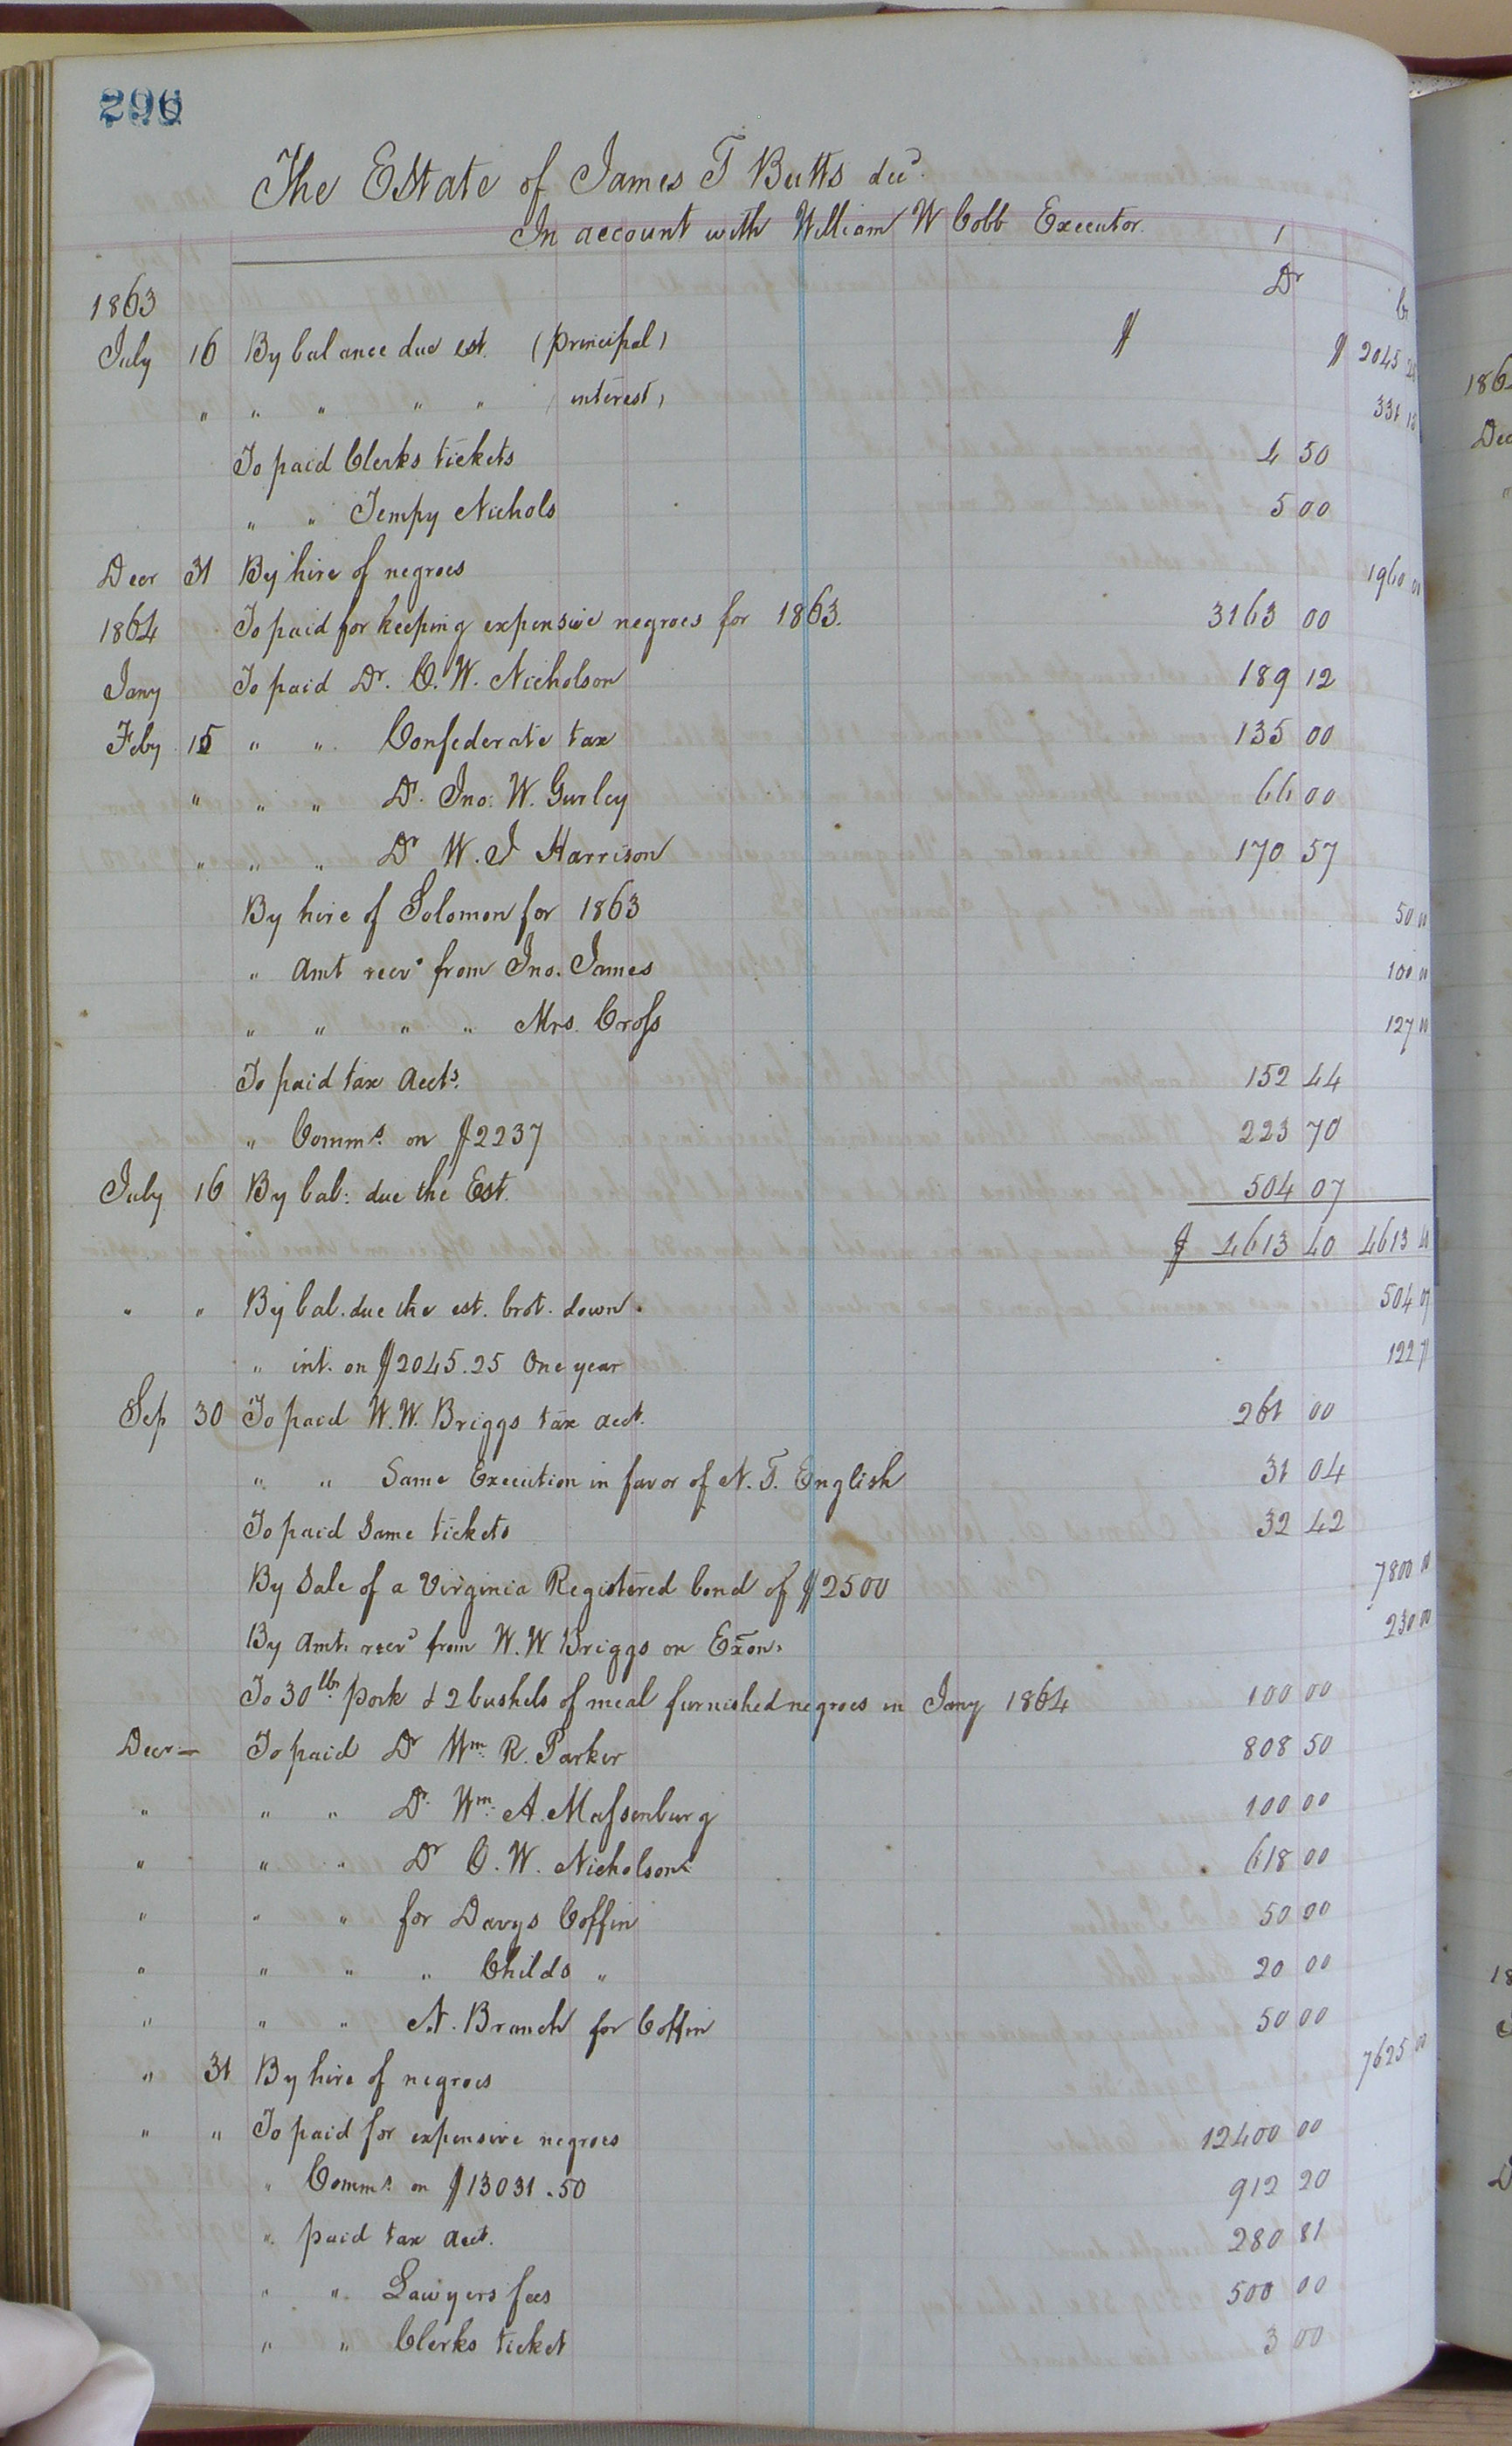 296
The Estate of James T Butts decd.
In account with William W Cobb Executor.
Dr Cr
1863
July 16 By balance due est. (principal) $ $ 2045 25
" " " " " (interest) 331 15
To paid Clerks tickets 4 50
" " Tempy Nichols 5 00
Decr 31 By hire of negroes 1960 00
1864 To paid for keeping expensive negroes for 1863. 3163 00
Jany To paid Dr. C. W. Nicholson 189 12
Feby 15 " " Confederate tax 135 00
" " " Dr. Jno. W. Gurley 66 00
" " " Dr W. J Harrison 170 57
By hire of Solomon for 1863 50 00
" Amt recd from Jno. James 100 00
" " " " Mrs. Cross 127 00
To paid tax Accts. 152 44
" Comms. on $2237 223 70
July 16 By bal: due the Est. 504 07
$ 4613 40 4613 40
" " By bal. due the est. brot. down. 504 07
" int. on $2045.25 One year 122 71
Sep 30 To paid W. W. Briggs tax acct. 261 00
" " Same Execution in favor of N. T. English 31 04
To paid Same tickets 32 42
By Sale of a Virginia Registered bond of $2500 7800 00
By Amt. recd from W. W. Briggs on Exon. 230 00
To 30 lbs. pork & 2 bushels of meal furnished negroes in Jany 1864 100 00
Decr — To paid Dr Wm. R. Parker 808 50
" " " Dr. Wm. A. Massenburg 100 00
" " " Dr C. W. Nicholson 618 00
" " " for Davys Coffin 50 00
" " " " Childs " 20 00
" " " N. Branch for Coffin 50 00
" 31 By hire of negroes 7625 00
" " To paid for expensive negroes 12400 00
" Comms. on $13031.50 912 20
" paid tax acct. 280 81
" " Lawyers fees 500 00
" " Clerks ticket 3 00
186
Dec